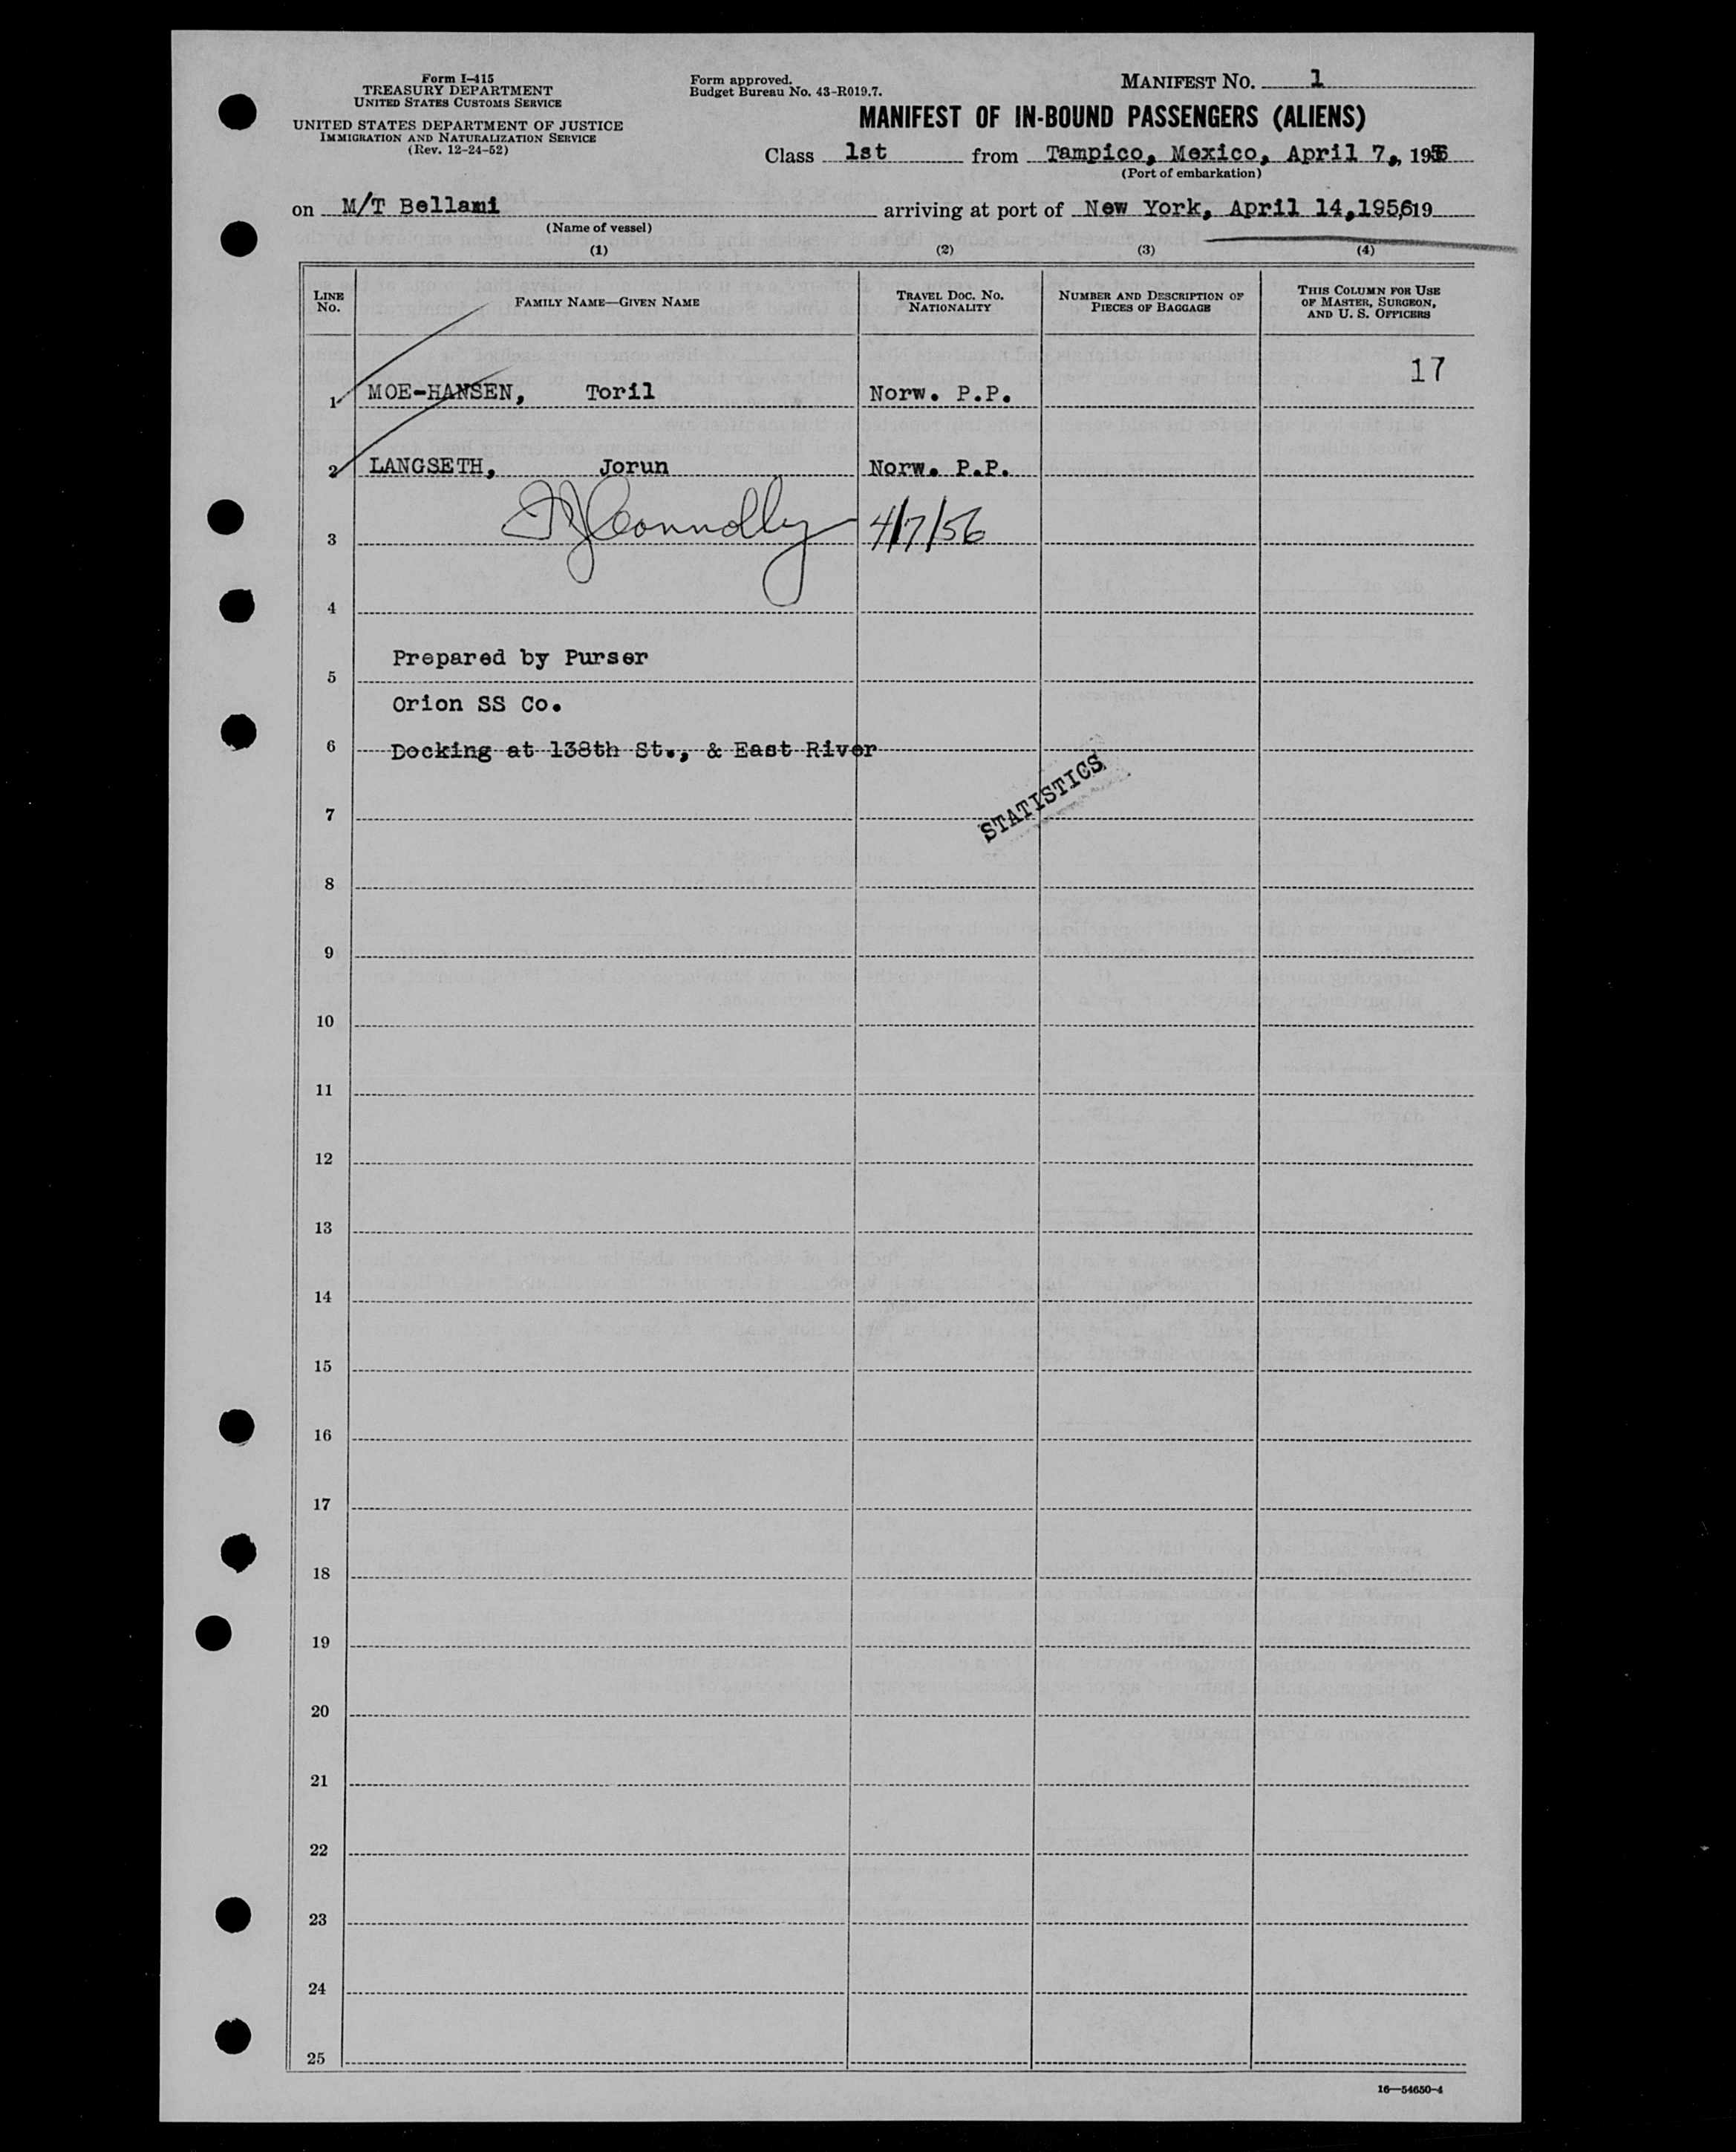 Form I-415
TREASURY DEPARTMENT
UNITED STATES CUSTOMS SERVICE
UNITED STATES DEPARTMENT OF JUSTICE
IMMIGRATION AND NATURALIZATION SERVICE
(Rev. 12-24-52)
Form approved.
Budget Bureau No. 43-R019.7.
MANIFEST NO. 1
MANIFEST OF IN-BOUND PASSENGERS (ALIENS)
Class 1st from Tampico, Mexico, April 7, 1956
(Port of embarkation)
on M/T Bellami arriving at port of New York, April 14, 1956, 19
(Name of vessel)
(1) (2) (3) (4)
LINE No. FAMILY NAME—GIVEN NAME TRAVEL DOC. NO. NATIONALITY NUMBER AND DESCRIPTION OF PIECES OF BAGGAGE THIS COLUMN FOR USE OF MASTER, SURGEON, AND U. S. OFFICERS
17
1 MOE-HANSEN, Toril Norw. P.P.
2 LANGSETH, Jorun Norw. P.P.
3 Connolly 4/7/56
4
Prepared by Purser
5
Orion SS Co.
6 Docking at 138th St., & East River
STATISTICS
7
8
9
10
11
12
13
14
15
16
17
18
19
20
21
22
23
24
25
16—54650-4